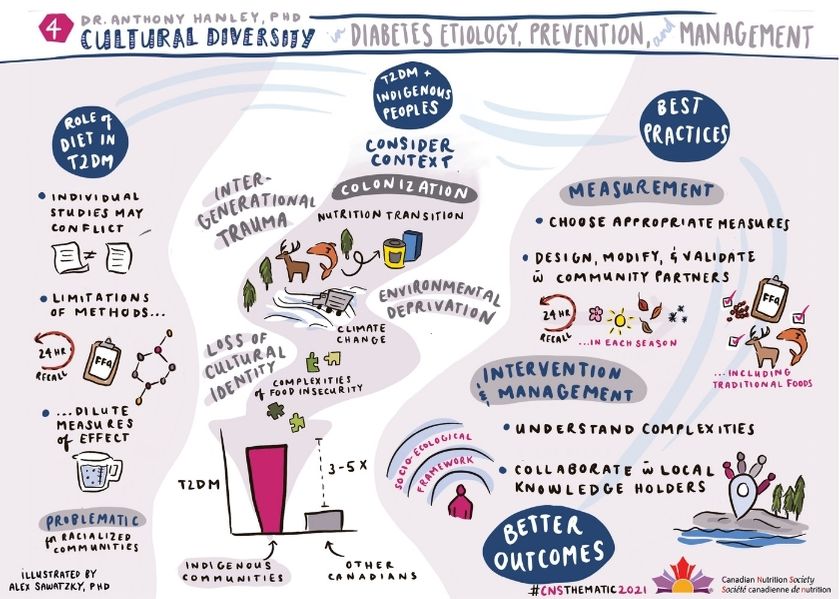 4
DR. ANTHONY HANLEY, PHD
CULTURAL DIVERSITY in DIABETES ETIOLOGY, PREVENTION, and MANAGEMENT
ROLE of
DIET IN
T2DM
• INDIVIDUAL
STUDIES MAY
CONFLICT
≠
• LIMITATIONS
OF METHODS...
24 HR
RECALL
FFQ
• ...DILUTE
MEASURES
of EFFECT
PROBLEMATIC
for RACIALIZED
COMMUNITIES
ILLUSTRATED BY
ALEX SAWATZKY, PHD
T2DM +
INDIGENOUS
PEOPLES
CONSIDER
CONTEXT
COLONIZATION
INTER-
GENERATIONAL
TRAUMA
NUTRITION TRANSITION
ENVIRONMENTAL
DEPRIVATION
CLIMATE
CHANGE
LOSS OF
CULTURAL
IDENTITY
COMPLEXITIES
OF FOOD INSECURITY
T2DM
3-5 X
INDIGENOUS
COMMUNITIES
OTHER
CANADIANS
BEST
PRACTICES
MEASUREMENT
• CHOOSE APPROPRIATE MEASURES
• DESIGN, MODIFY, & VALIDATE
w̄ COMMUNITY PARTNERS
24 HR
RECALL
...IN EACH SEASON
FFQ
...INCLUDING
TRADITIONAL FOODS
INTERVENTION
& MANAGEMENT
• UNDERSTAND COMPLEXITIES
• COLLABORATE w̄ LOCAL
KNOWLEDGE HOLDERS
SOCIO-ECOLOGICAL
FRAMEWORK
BETTER
OUTCOMES
#CNSTHEMATIC2021
Canadian Nutrition Society
Société canadienne de nutrition